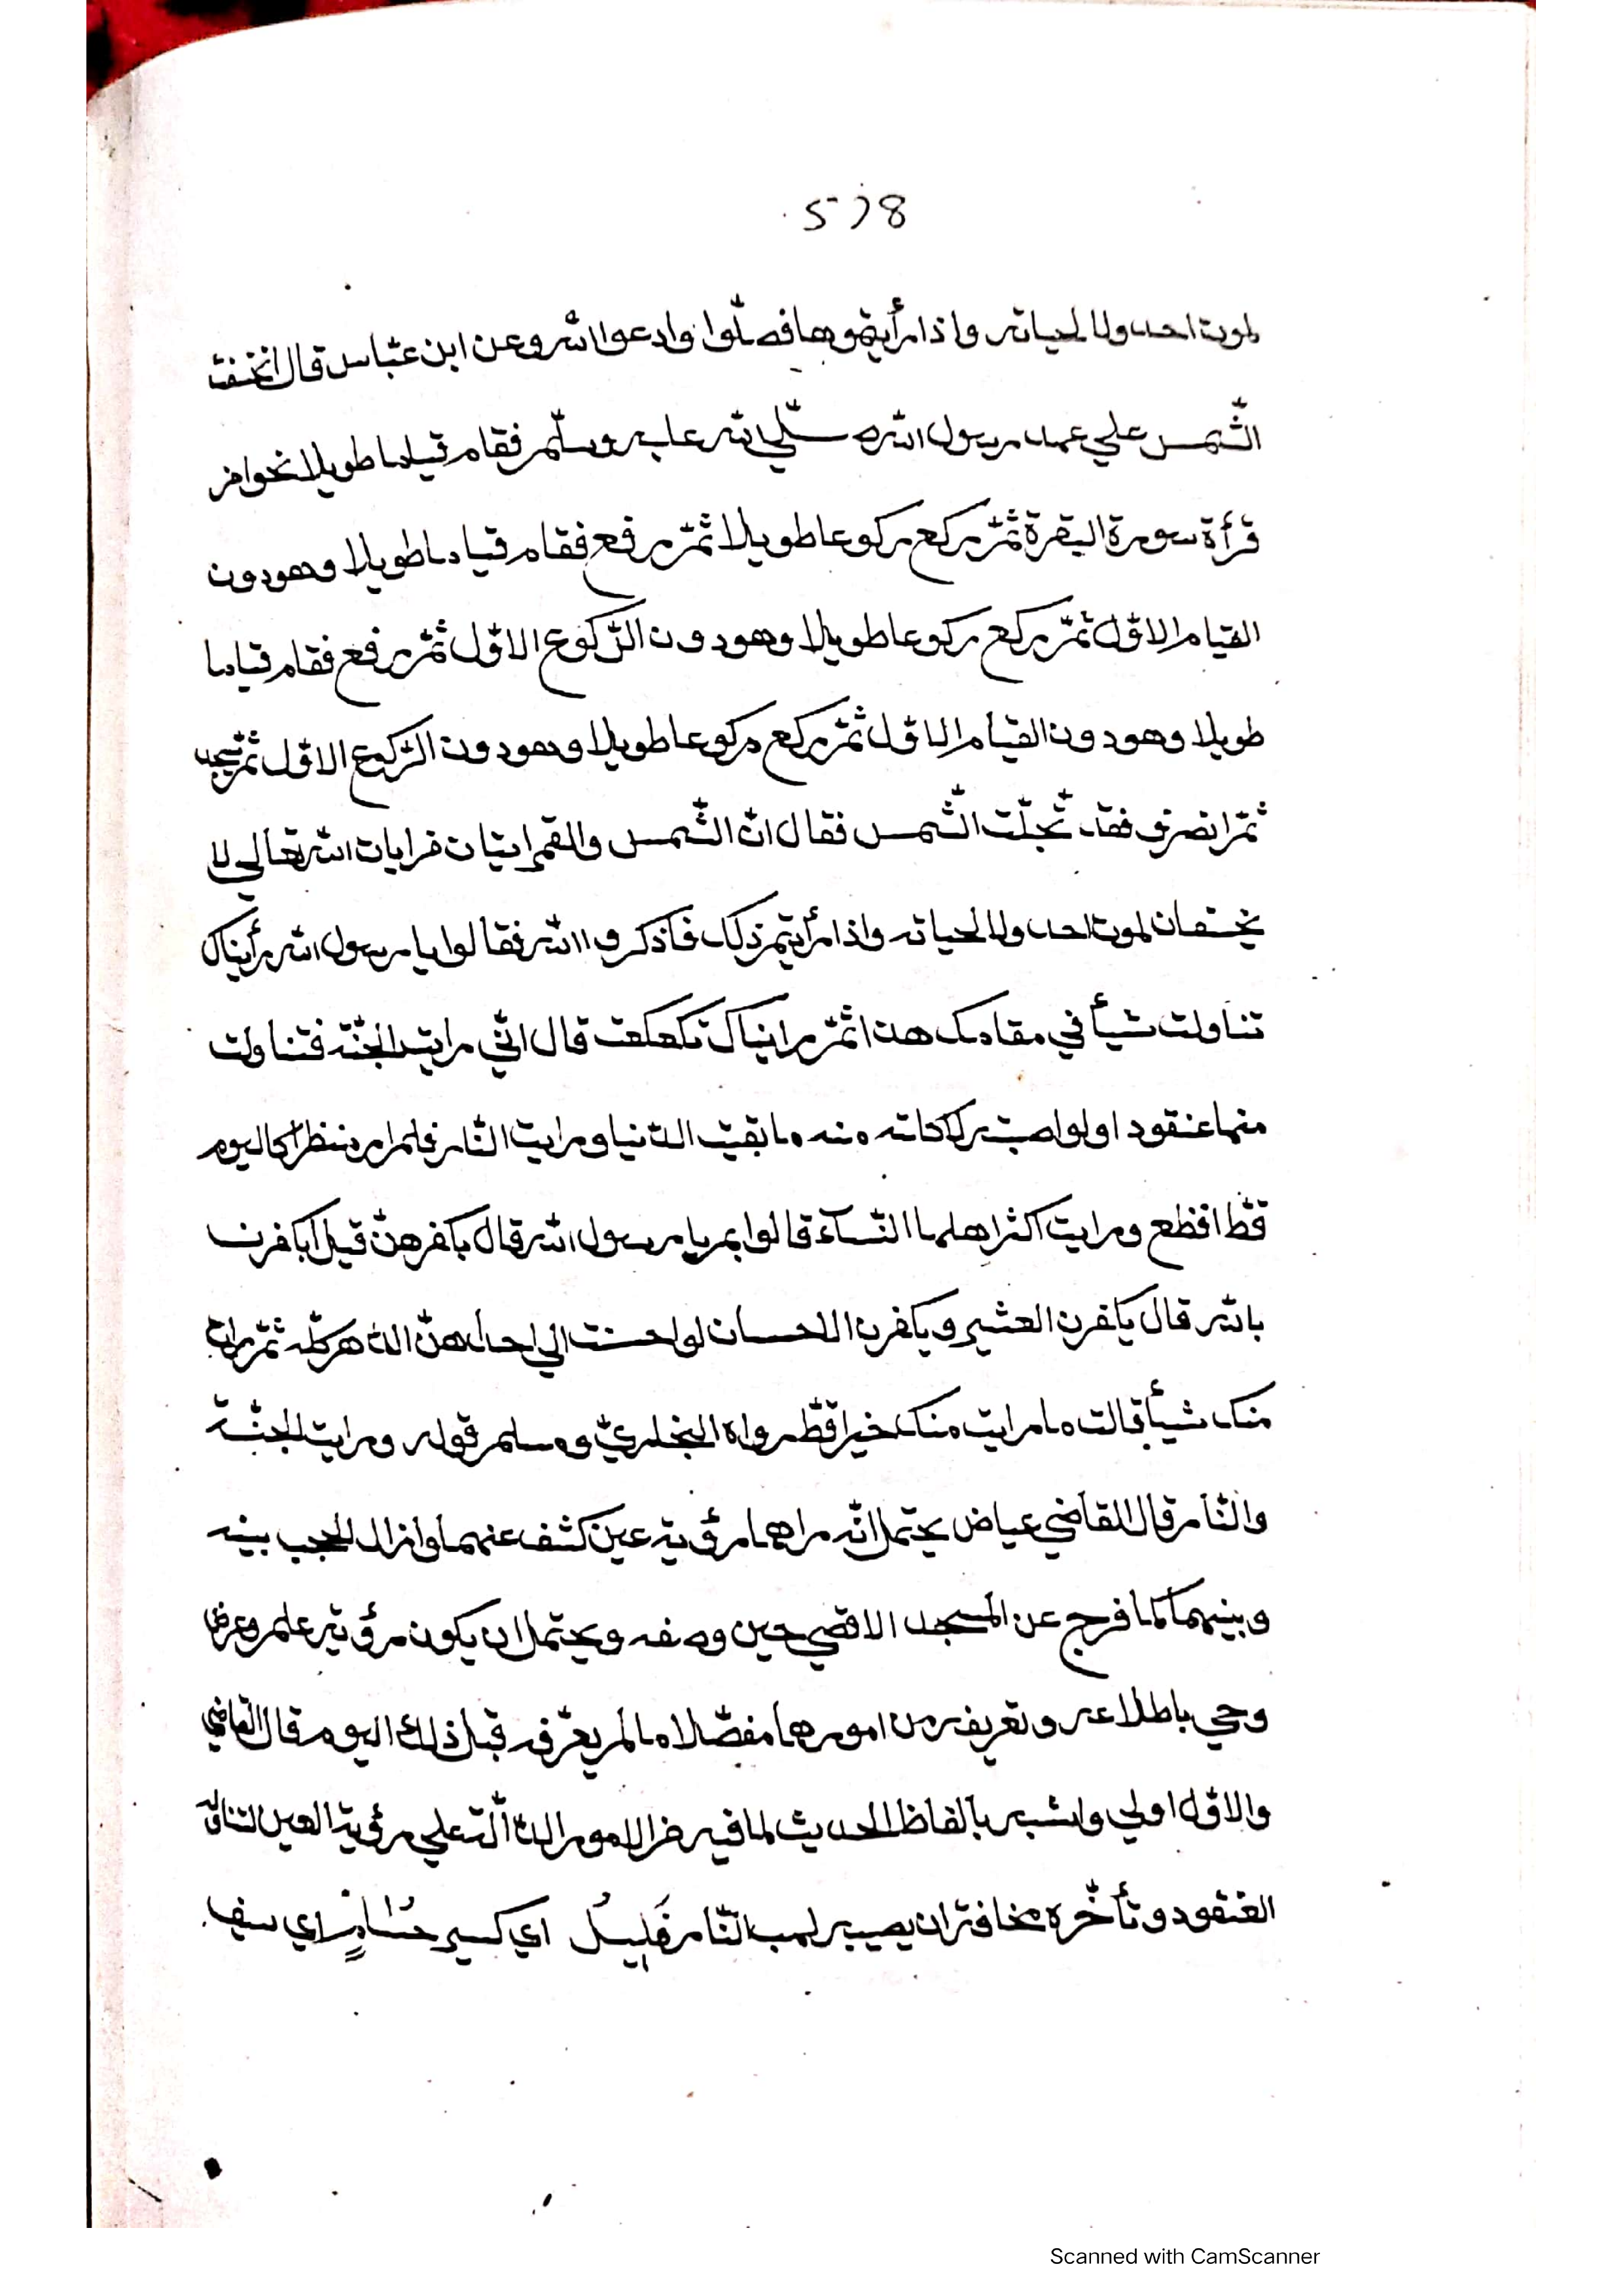 528
لموت احد ولا لحياته واذا رأيتموها فصلّوا وادعوا الله وعن ابن عبّاس قال انخسفت
الشّمس علي عهد رسول الله صلّي الله عليه وسلّم فقام قياما طويلا نحوا من
قرأة سورة البقرة ثمّ ركع ركوعا طويلا ثمّ رفع فقام قياما طويلا وهو دون
القيام الاوّل ثمّ ركع ركوعا طويلا وهو دون الرّكوع الاوّل ثمّ رفع فقام قياما
طويلا وهو دون القيام الاوّل ثمّ ركع ركوعا طويلا وهو دون الرّكوع الاوّل ثمّ سجد
ثمّ انصرف فقد تجلّت الشّمس فقال انّ الشّمس والقمر ايتان من ايات الله تعالي لا
يخسفان لموت احد ولا لحياته واذا رأيتم ذلك فاذكروا الله فقالوا يا رسول الله رأيناك
تناولت شيأ في مقامك هذا ثمّ رايناك تكعكعت قال انّي رايت الجنّة فتناولت
منها عنقودا ولو اصبت لاكلته منه ما بقيت الدّنيا ورايت النّار فلم ار منظرا كاليوم
قطّ افظع ورايت اكثر اهلها النّسآء قالوا بم يا رسول الله قال بكفرهنّ قيل ايكفرن
بالله قال يكفرن العشير ويكفرن الاحسان لو احسنت الي احداهنّ الدّهر كلّه ثمّ رات
منك شيأ قالت ما رايت منك خيرا قطّ رواه البخاريّ ومسلم قوله ورايت الجنّة
والنّار قال القاضي عياض يحتمل انّه راهما رؤية عين كشف عنهما وازال الحجب بينه
وبينهما كما فرج عن المسجد الاقصي حين وصفه ويحتمل ان يكون رؤية علم وعرض
وحي باطلاعه وتعريفه من امورهما مفصّلا ما لم يعرّفه قبل ذلك اليوم قال القاضي
والاوّل اولي واشبه بالفاظ الحديث لما فيه من الامور الدّالّة علي رؤية العين لتناوله
العنقود وتأخّره مخافة ان يصيبه لهب النّار فَلِيلُ اي كسير حُسَامٍ اي سيف
Scanned with CamScanner